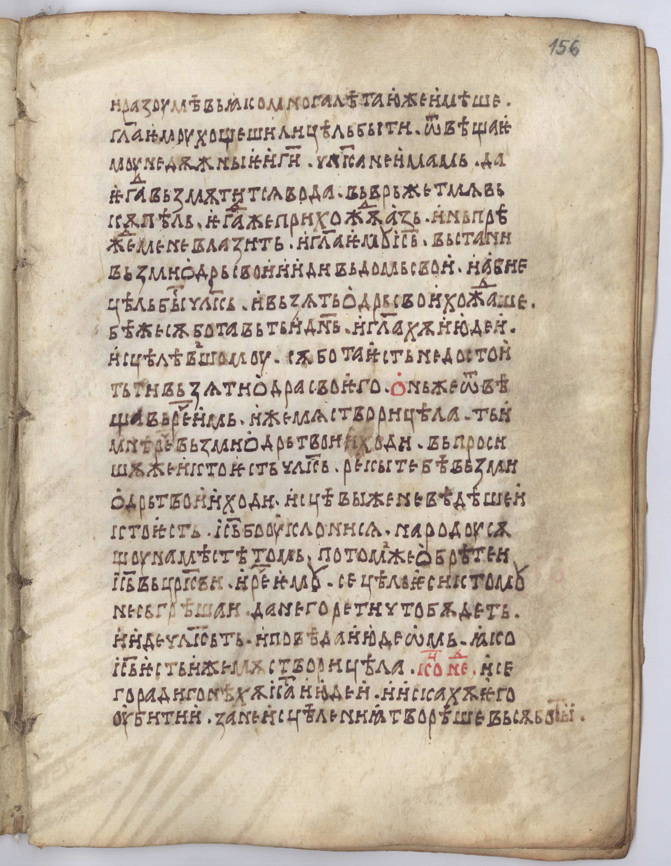 156
н разоумѣвь ꙗко многа лѣта юже имѣше ·
гл҃а ѥмоу хощеши ли цѣль быти · ѿвѣща ѥ
моу недѫжныи ѥи г҃и · чл҃ка не имамь · да
ѥгⷣа възмѫтитсѧ вода · въврьжет мѧ вь
кѫпѣль · ѥгⷣа же прихождѫ азь · инь прѣ
жⷣе мене влазить · и гл҃а ѥмꙋ і҃сь · въстани
възми ѻдрь свои и иди въ домь свои · и абиѥ
цѣль быⷭ чл҃кь · и възѧть ѻдрь свои и хожⷣаше ·
бѣ же сѫбота вь ть д҃нь · и гл҃ахѫ июдеи ·
исцѣлѣвшомоу · сѫбота ѥсть не достои
ть ти възѧти ѻдра своѥго · ѻнь же ѿвѣ
щавь р҃е имь · иже мѧ створи цѣла · ть и
мнѣ р҃е възми ѻдрь твои и ходи · въпроси
шѫ же и кто ѥсть чл҃кь · рекы тебѣ възми
ѻдрь твои и ходи · исцѣвы же не вѣдѣше и
кто ѥсть · і҃сь бо оуклонисѧ · народоу сѫ
щоу на мѣстѣ томь · потомже ѻбрѣте и
і҃сь вь цр҃кви · и р҃е ѥмꙋ · се цѣль ѥси к томꙋ
не съгрѣшаи · да не горе ти что бѫдеть ·
и иде чл҃кь ть · и повѣда июдеѡмь · ꙗко
і҃сь ѥсть иже мѧ створи цѣла · коⷰ неⷣ · и се
го ради гонѣхѫ і҃са июдеи · и искахѫ ѥго
оубити и · зане исцѣлениꙗ творѣше вь сѫботы ·